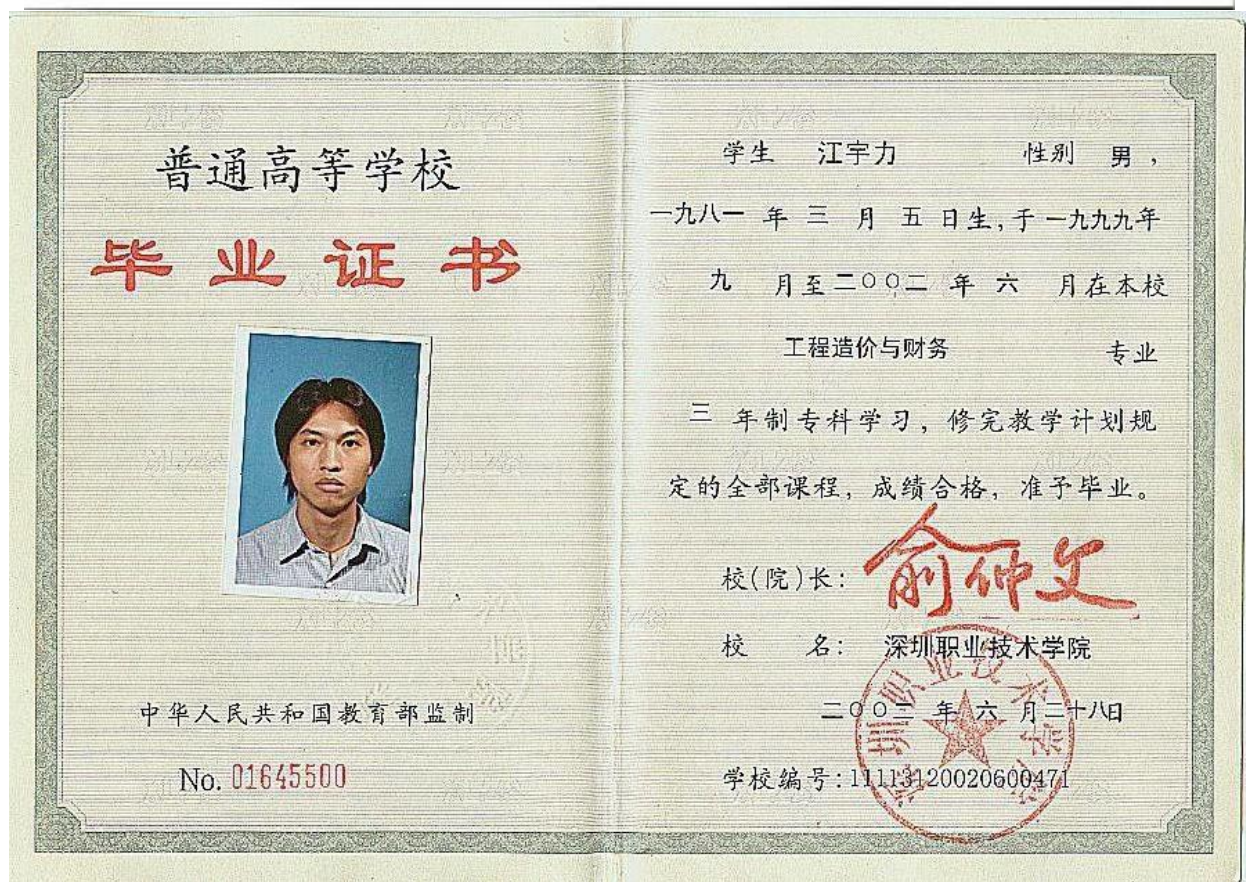 普通高等学校
毕业证书
中华人民共和国教育部监制
No. 01645500
学生 江宇力 性别 男，
一九八一 年 三 月 五 日生，于 一九九九年
九 月至二〇〇二 年 六 月在本校
工程造价与财务 专业
三 年制专科学习，修完教学计划规
定的全部课程，成绩合格，准予毕业。
校(院)长：俞仲文
校 名：深圳职业技术学院
二〇〇二 年 六 月二十八日
学校编号：11113120020600471
深圳职业技术学院